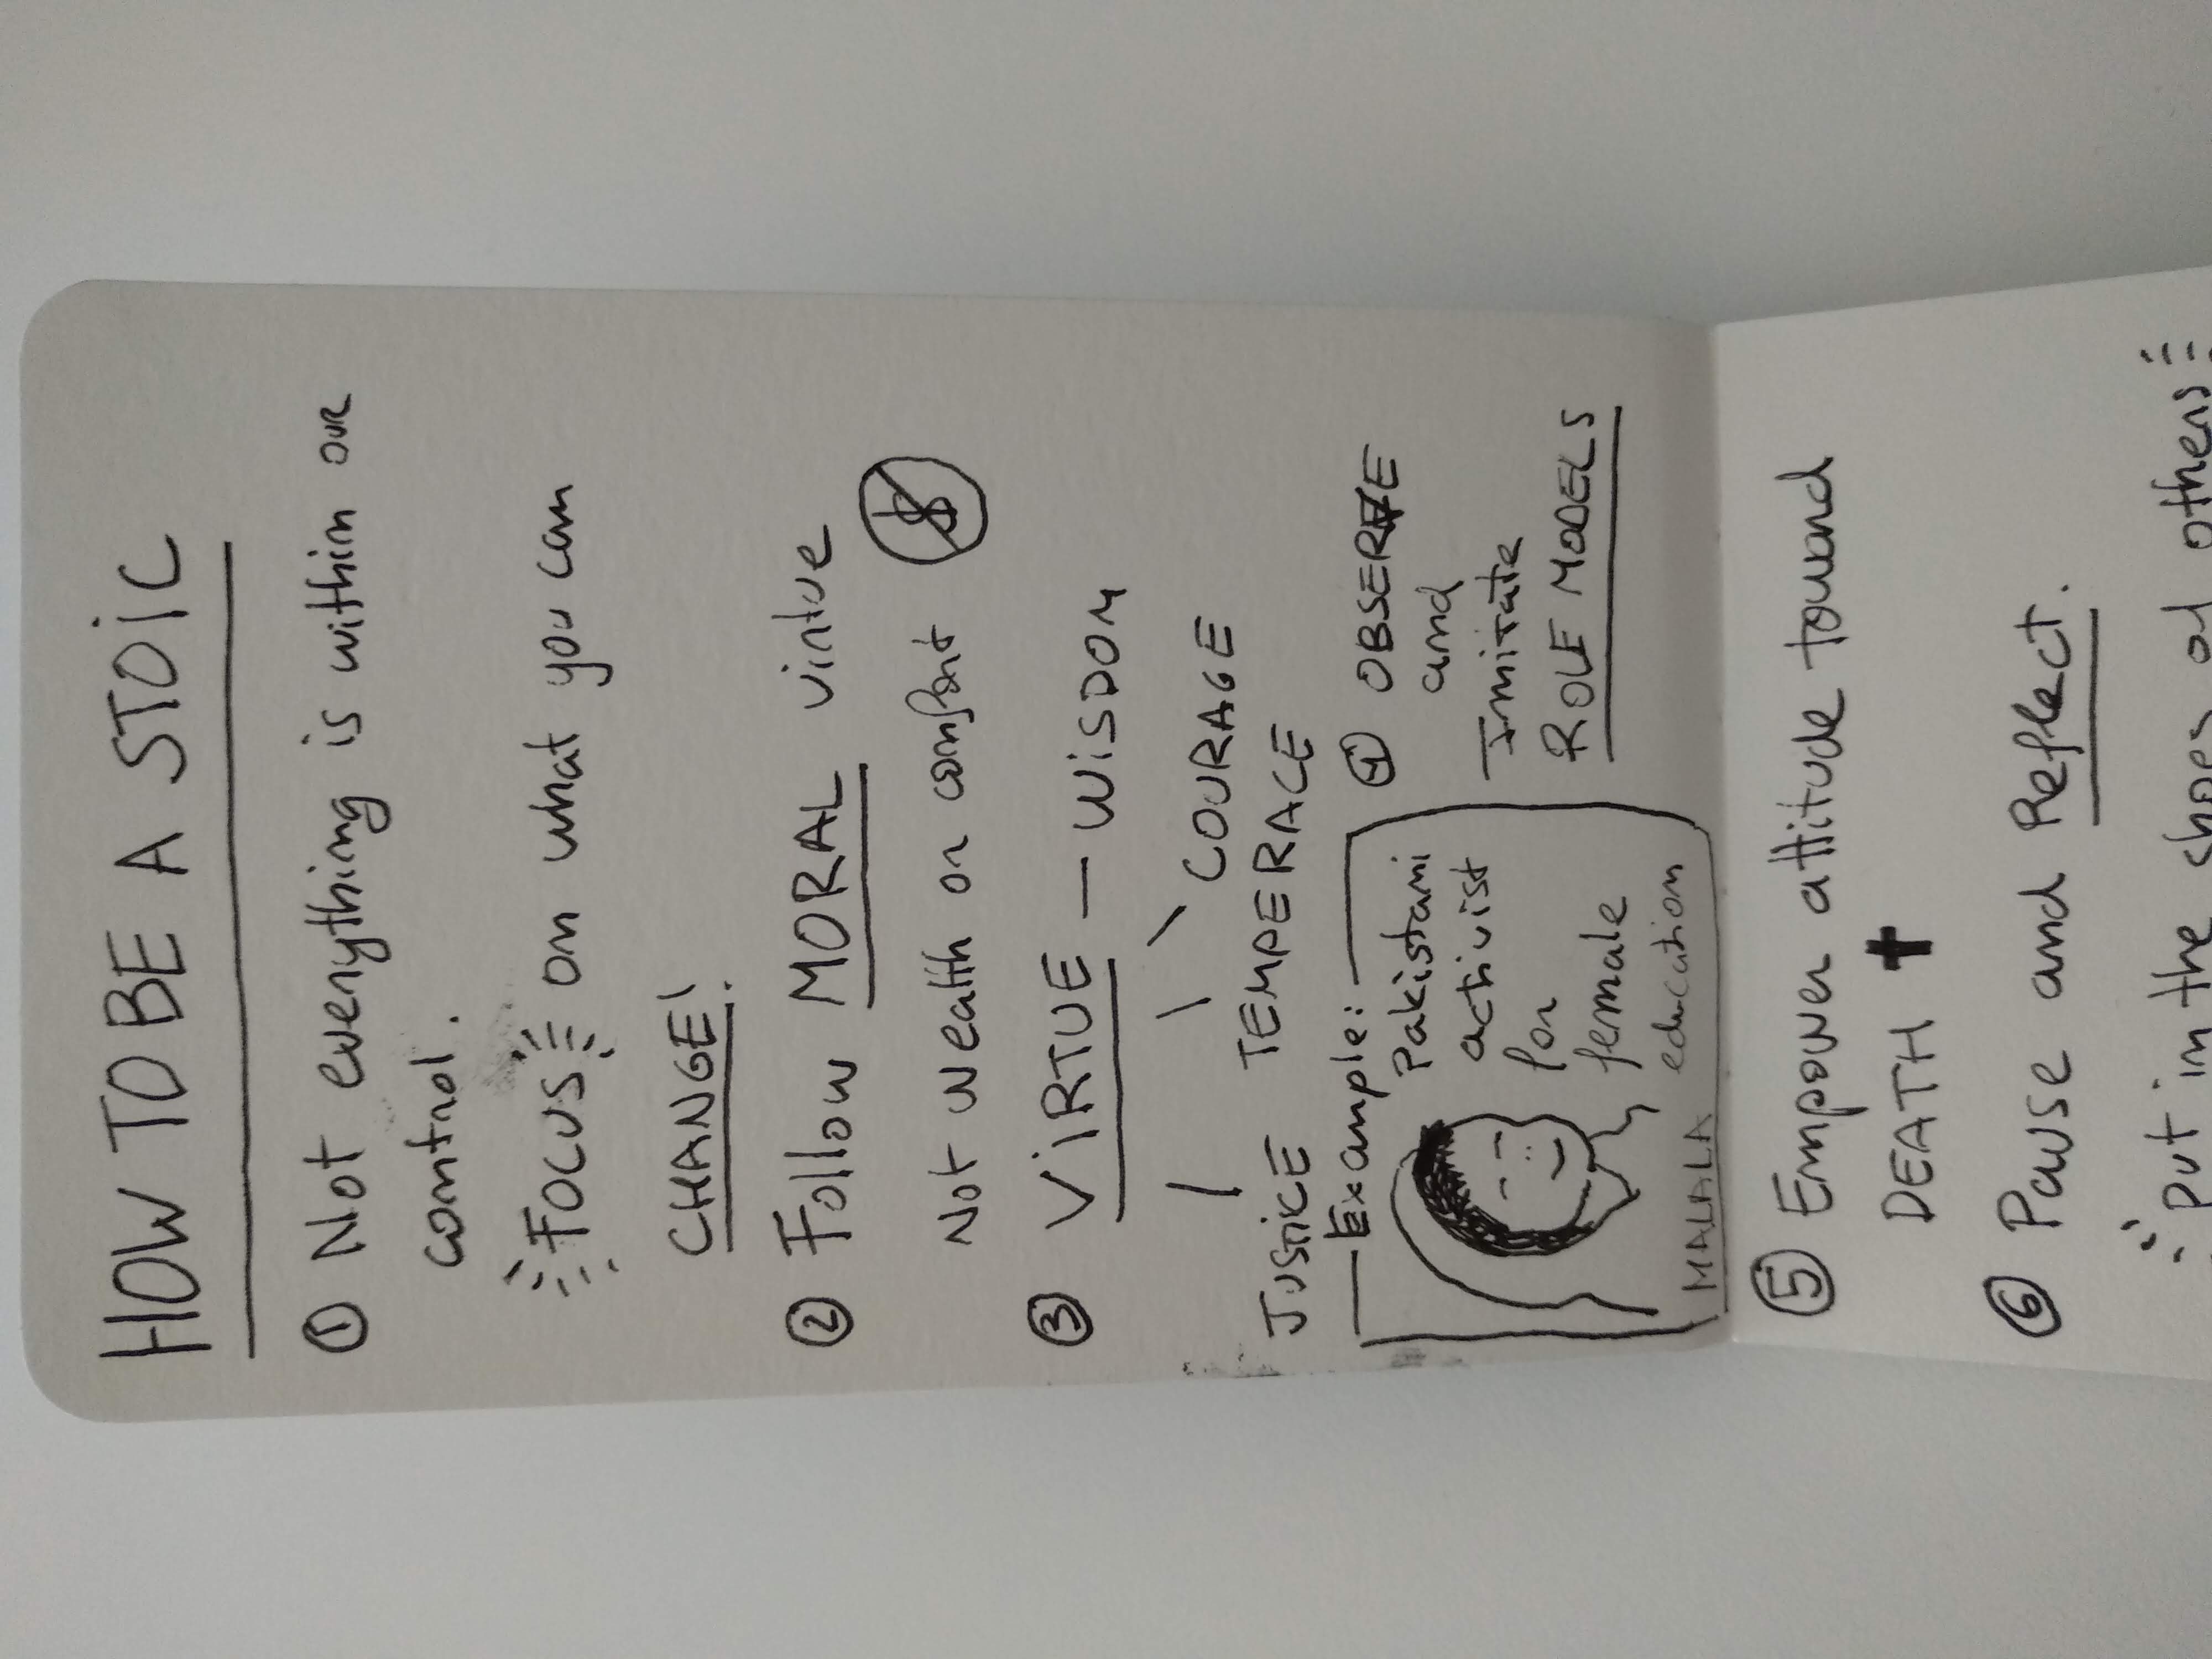 HOW TO BE A STOIC
① Not everything is within OUR
control.
FOCUS on what you can
CHANGE!
② Follow MORAL virtue
Not wealth or confort
$
③ VIRTUE - WISDOM
COURAGE
TEMPERACE
JUSTICE
Example:
Pakistani
activist
for
female
education
MALALA
④ OBSERVE
and
Imitate
ROLE MODELS
⑤ Empower attitude toward
DEATH ✝
⑥ Pause and Reflect.
put in the shoes of others